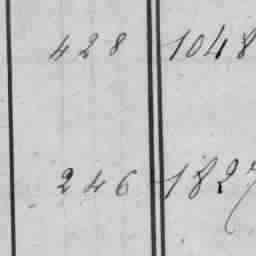 428 1048
246 1827